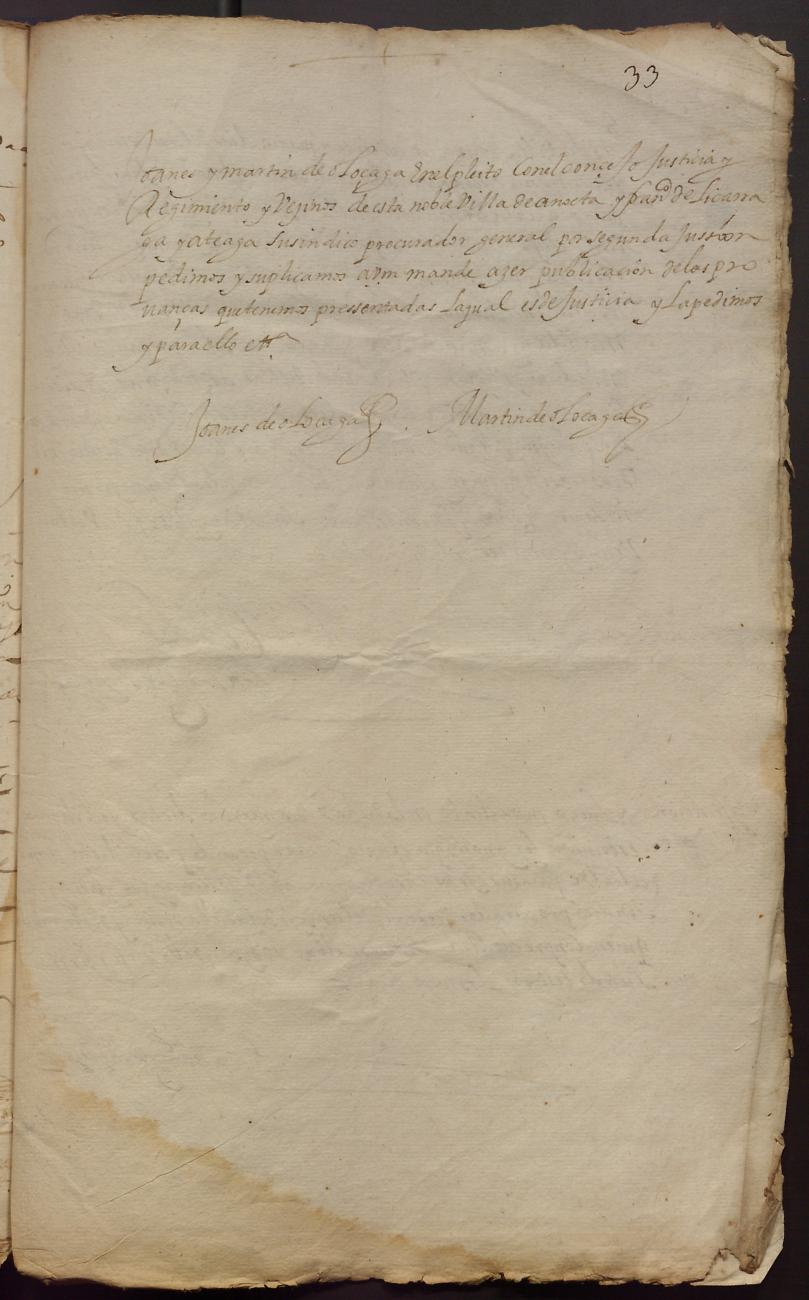 33
Joanes y martin de oLoçaga En el pleito Con el conçejo Justicia y
Regimiento y Vejinos de esta noble Villa de anoeta y fran^do de Liçarra
ga y ateaga Su sindico procurador general por segunda
pedimos y suplicamos a vm mande açer publicacion de las pro
uanças que tenemos pressentadas La qual es de Justicia y La pedimos
y para ello ett^a
Joanes de oLoçaga Martin de oLoçaga